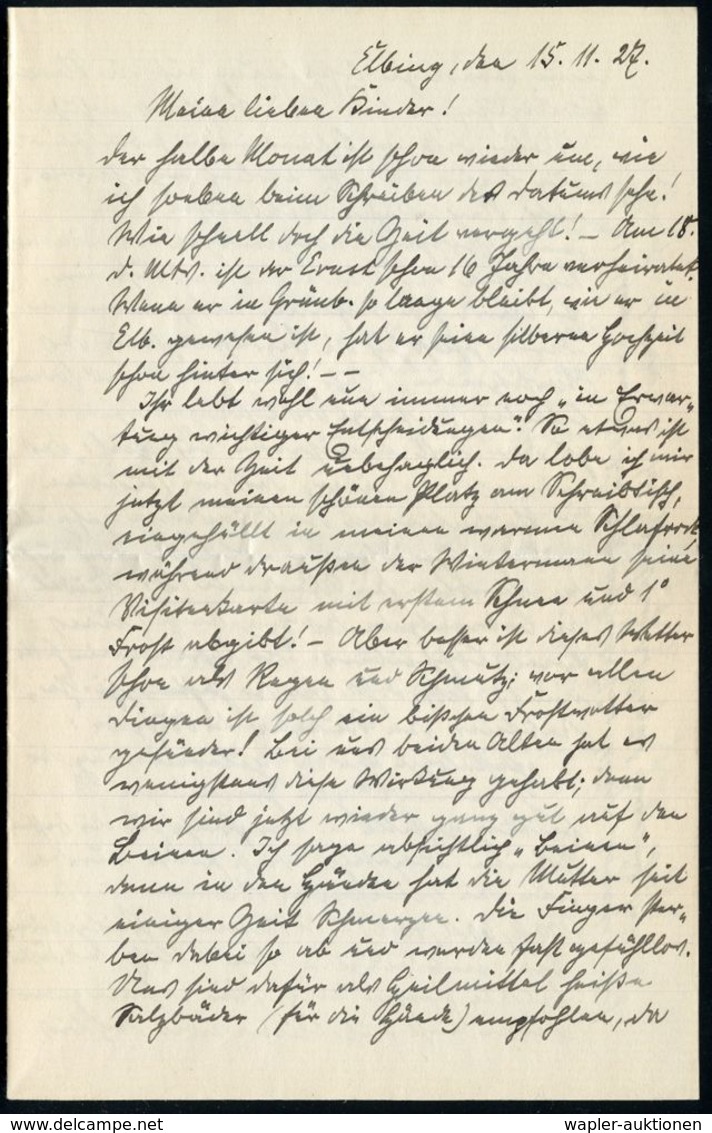 Elbing, den 15. 11. 27.
Meine lieben Kinder!
Der halbe Monat ist schon wieder um, wie
ich soeben beim Schreiben des Datums sehe!
Wie schnell doch die Zeit vergeht! – Am 18.
d. Mts. ist der Ernst schon 16 Jahre verheiratet.
Wenn er in Grünb. so lange bleibt, wie er in
Elb. gewesen ist, hat er seine silberne Hochzeit
schon hinter sich! – –
Ihr lebt wohl nun immer noch „in Erwar-
tung wichtiger Entscheidungen“. So etwas ist
mit der Zeit unbehaglich. Da lobe ich mir
jetzt meinen schönen Platz am Schreibtisch,
eingehüllt in meinen warmen Schlafrock,
während draußen der Wintermann seine
Visitenkarte mit erstem Schnee und 1°
Frost abgibt! – Aber besser ist dieses Wetter
schon als Regen und Schmutz; vor allen
Dingen ist solch ein bißchen Frostwetter
gesünder! Bei uns beiden Alten hat es
wenigstens diese Wirkung gehabt; denn
wir sind jetzt wieder ganz gut auf den
Beinen. Ich sage absichtlich „Beinen“,
denn in den Händen hat die Mutter seit
einiger Zeit Schmerzen. Die Finger ster-
ben dabei so ab und werden fast gefühllos.
Uns sind dafür als Heilmittel heiße
Salzbäder (für die Hände) empfohlen, da
delcampe.net
wapler-auktionen